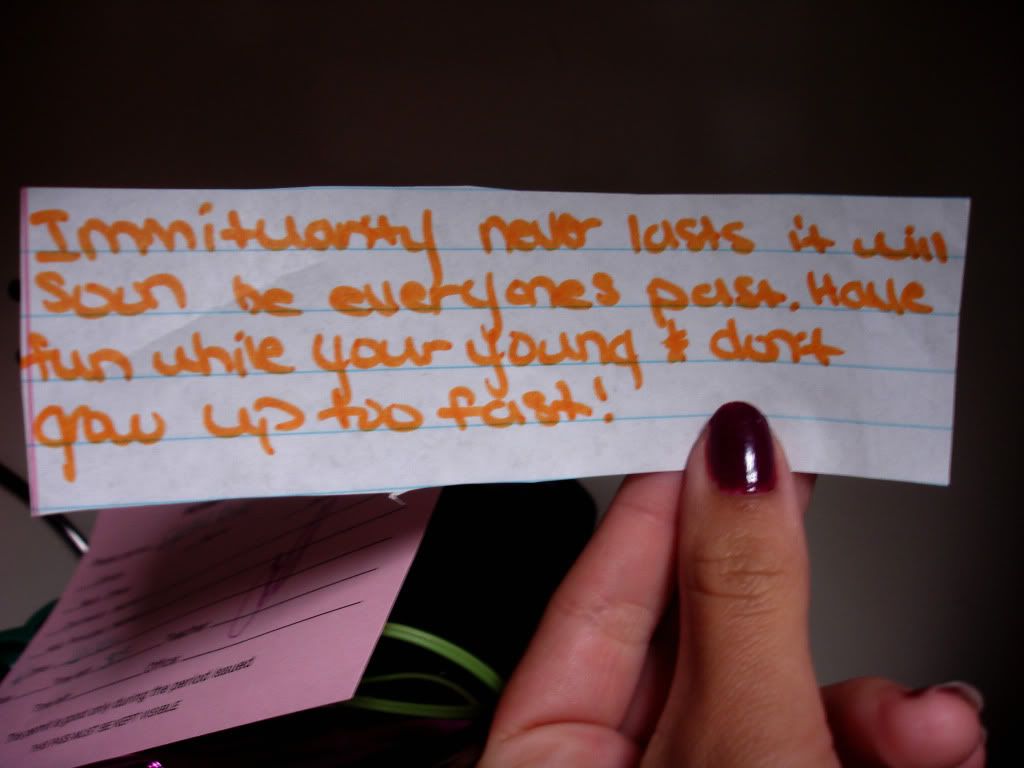 Immituarity never lasts it will
soon be everyones past. Have
fun while your young & dont
grow up too fast!
Teacher
Office
Time left
This permit is good only during the period issued
THIS PASS MUST BE KEPT VISIBLE